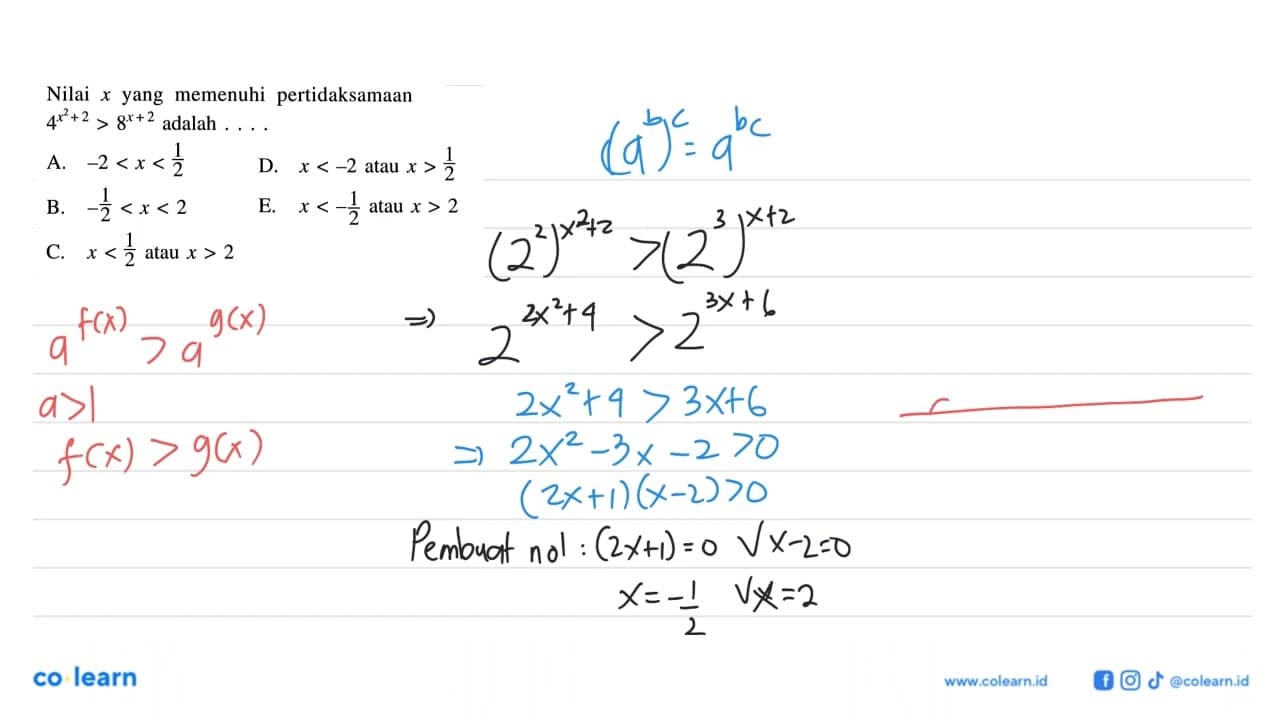 Nilai x yang memenuhi pertidaksamaan
4^{x^2+2} > 8^{x+2} adalah . . . .
A. –2 < x < 1/2
B. –1/2 < x < 2
C. x < 1/2 atau x > 2
D. x < –2 atau x > 1/2
E. x < –1/2 atau x > 2
a^{f(x)} > a^{g(x)}
a>1
f(x) > g(x)
(a^b)^c = a^{bc}
(2^2)^{x^2+2} > (2^3)^{x+2}
=> 2^{2x^2+4} > 2^{3x+6}
2x^2+4 > 3x+6
=> 2x^2-3x-2>0
(2x+1)(x-2)>0
Pembuat nol : (2x+1)=0 √ x-2=0
x=-1/2 √ x=2
co·learn
www.colearn.id
@colearn.id